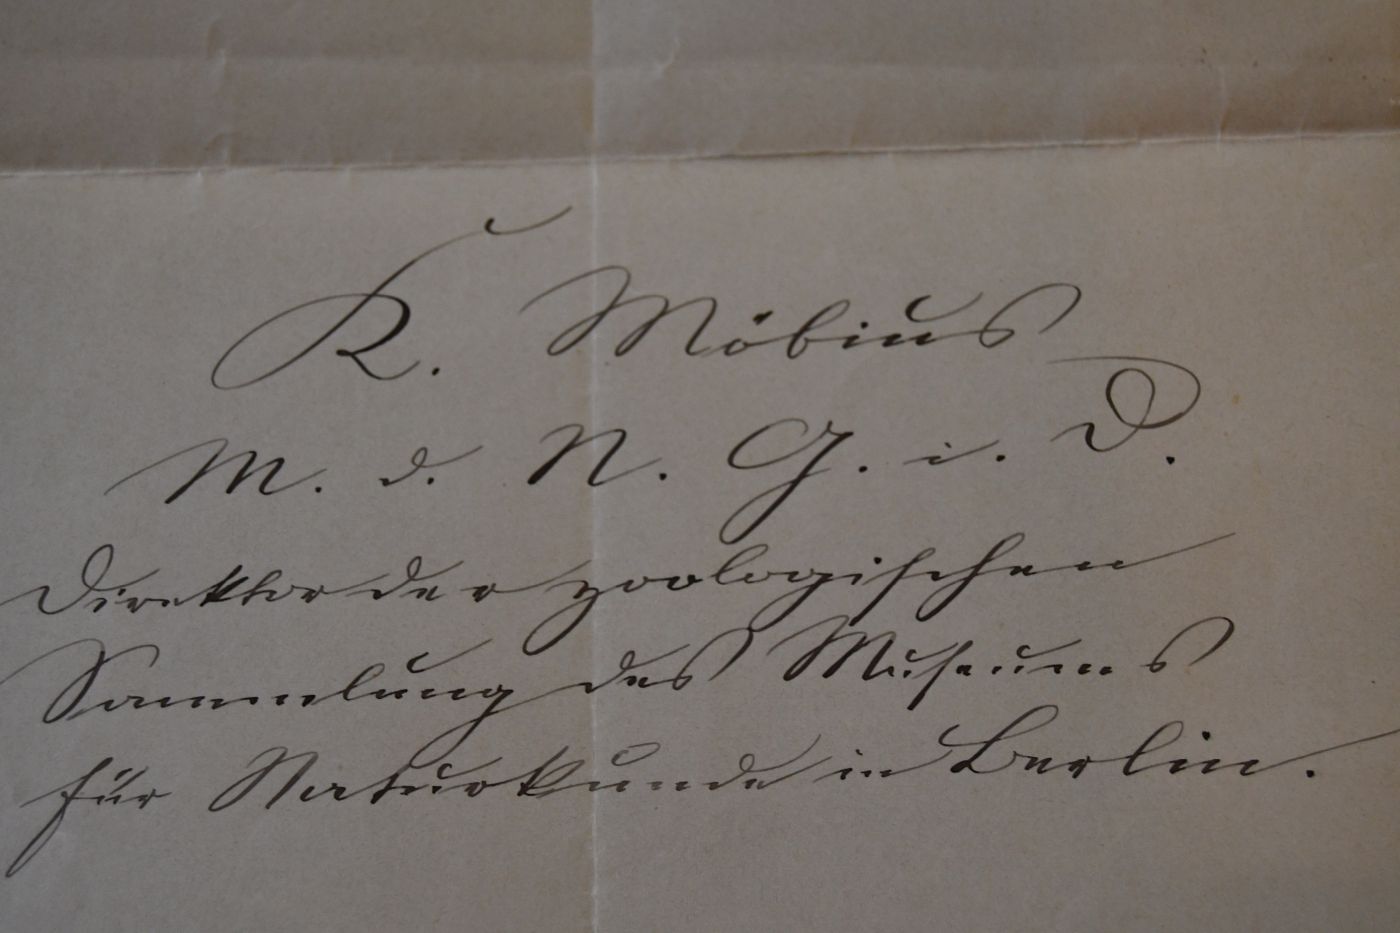 K. Möbius
M. d. N. G. i. D.
Direktor der zoologischen
Sammlung des Museums
für Naturkunde in Berlin.